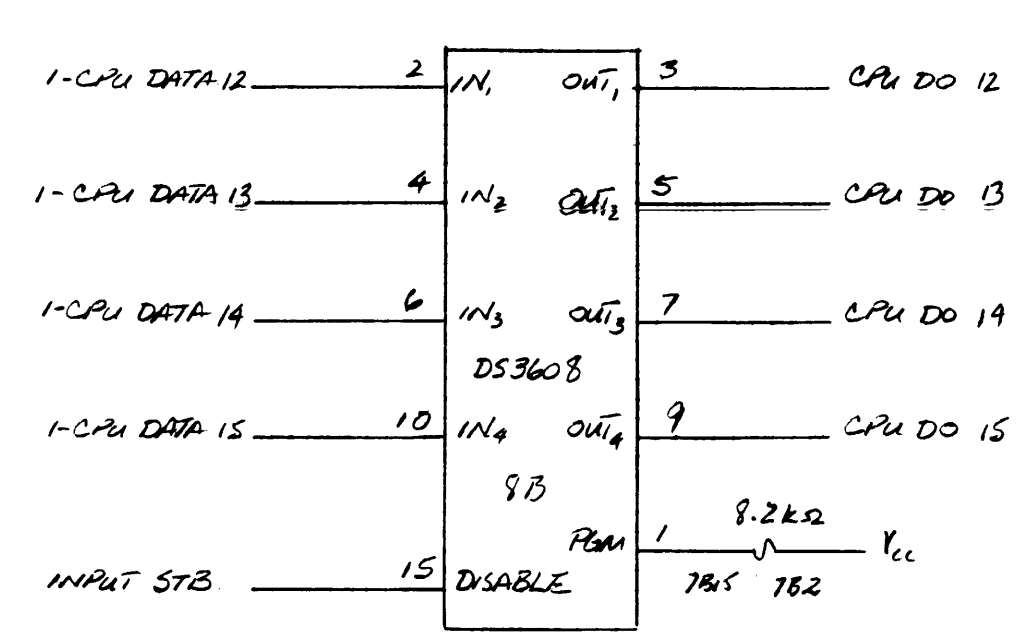 1-CPU DATA 12 2 IN1 OUT1 3 CPU DO 12
1-CPU DATA 13 4 IN2 OUT2 5 CPU DO 13
1-CPU DATA 14 6 IN3 OUT3 7 CPU DO 14
DS3608
1-CPU DATA 15 10 IN4 OUT4 9 CPU DO 15
8B
8.2kΩ
PGM 1 Vcc
INPUT STB 15 DISABLE 7B15 7B2